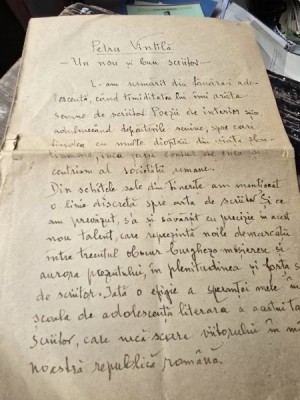 Petru Vintilă
- Un nou și bun scriitor -
L-am urmărit din fanara-i ado-
lescență, când timiditatea lui îmi arăta
semne de scriitor. Poezii de interior
adulmecând depărtările senine, spre care
tindea cu multe dioptrii din viața
centrism al societății romane.
Din schițele sale din Tinerțe am menționat
o linie discretă spre arta de scriitor. Și ce
am prevăzut, s'a și săvârșit cu precizie în acest
nou talent, care reprezintă noile demarcații
între trecutul obscur burghezo-moșieresc și
aurora prezentului, în plenitudinea și forța sa
de scriitor. Iată o efigie a speranței mele în
școala de adolescență literara a acestui
scriitor, care urcă scare viitorului în
noastră republică română.